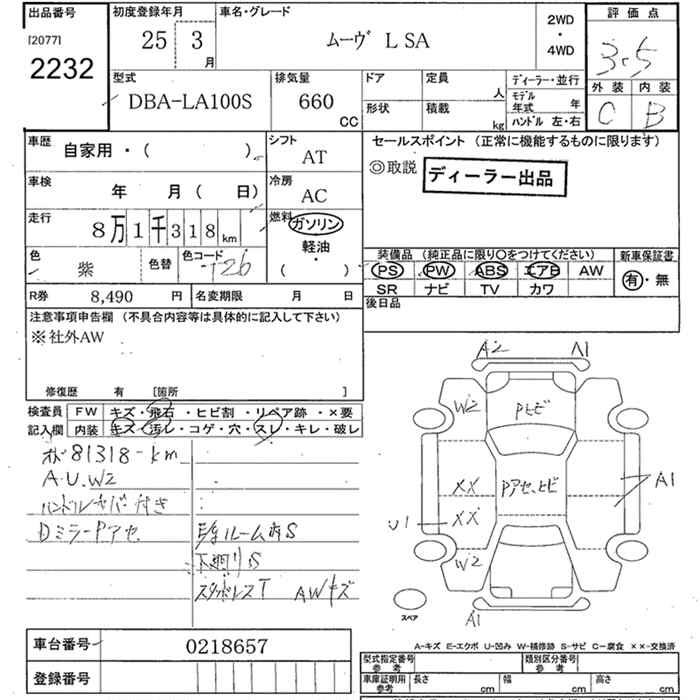 出品番号 初度登録年月 車名・グレード 2WD・4WD 評価点
[2077] 2232 25 3月 ムーヴ L SA 3.5
型式 排気量 ドア 定員 人 ディーラー・並行 外装 内装
DBA-LA100S 660 CC 形状 積載 kg モデル年式 年 C B
ハンドル 左・右
車歴 自家用・( ) シフト AT セールスポイント (正常に機能するものに限ります)
◎取説 ディーラー出品
車検 年 月 ( 日) 冷房 AC
走行 8万1千318km 燃料 ガソリン・軽油・( )
色 紫 色替 色コード T26
装備品 (純正品に限り○をつけてください) 新車保証書
PS PW ABS エアB AW 有・無
SR ナビ TV カワ
R券 8,490 円 名変期限 月 日 後日品
注意事項申告欄 (不具合内容等は具体的に記入して下さい)
※社外AW
修復歴 有 [箇所 ]
検査員 FW キズ・飛石・ヒビ割・リペア跡・×要
記入欄 内装 キズ・汚レ・コゲ・穴・スレ・キレ・破レ
81318-km
A.U.W2
ハンドルカバー付き
DミラーPアセ
ルーム内S
下廻りS
AWキズ
A2 A1
W2 Pヒビ
XX Pアセ、ヒビ A1
U1 XX
W2
スペア A1
A-キズ E-エクボ U-凹み W-補修跡 S-サビ C-腐食 ××-交換済
車台番号 0218657
登録番号
型式指定番号 参考 類別区分番号 参考
車庫証明用 参考 長さ cm 幅 cm 高さ cm